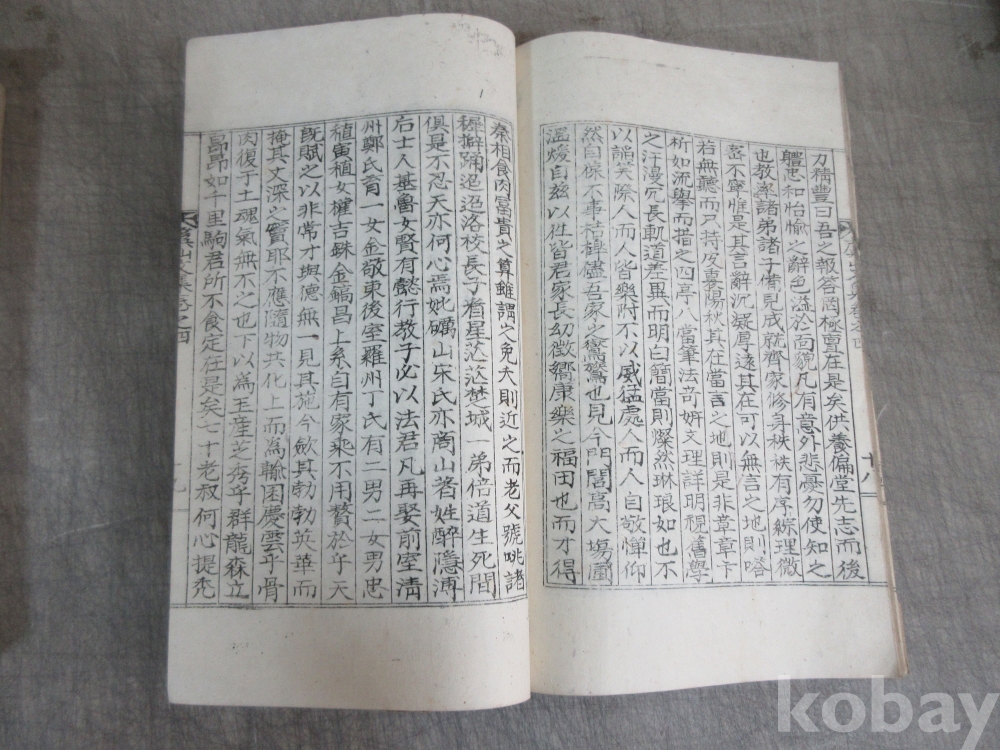 力精豊曰吾之報答罔極亶在是矣供養偏堂先志而後
軆忠和怡愉之辭色溢於面貌凡有意外悲憂勿使知之
也教率諸弟諸子備見成就齊家修身秩秩有序綜理微
密不寧惟是其言辭沉凝厚遠其在可以無言之地則嗒
若無聽而只持皮裏陽秋其在當言之地則是非章章卞
析如流擧而指之四亭八當筆法苛妍文理詳明視舊學
之汗漫冗長軌道差異而明白簡當則燦然琳琅如也不
以諂笑陰人而人皆樂附不以威猛處人而人自敬憚仰
然自像不事稊稗儘吾家之鸑鷟也見今門閭高大場圃
溫煖自玆以往皆君家長幼徵嚮康樂之福田也而才得
十八
秦相食肉富貴之算雖謂之免夫則近之而老父號咷諸
穉擗踊迢迢洛校長子看星茫茫楚城一弟倍道生死間
俱是不忍天亦何心焉妣礪山宋氏亦商山耆姓醉隱溥
后士人基魯女賢有懿行教子必以法君凡再娶前室淸
州鄭氏育一女金敬東後室羅州丁氏有二男二女男忠
植寅植女權吉銖金鎬昌上系自有家乘不用贅於乎天
旣賦之以非常才與德無一見其施今斂其勃勃英華而
掩其文深之竇耶不應隨物共化上而爲輪囷慶雲乎骨
肉復于土魂氣無不之也下以爲玉産芝秀乎群龍森立
昻昻如千里駒君所不食定在是矣七十老叔何心提禿
之四
十九
kobay